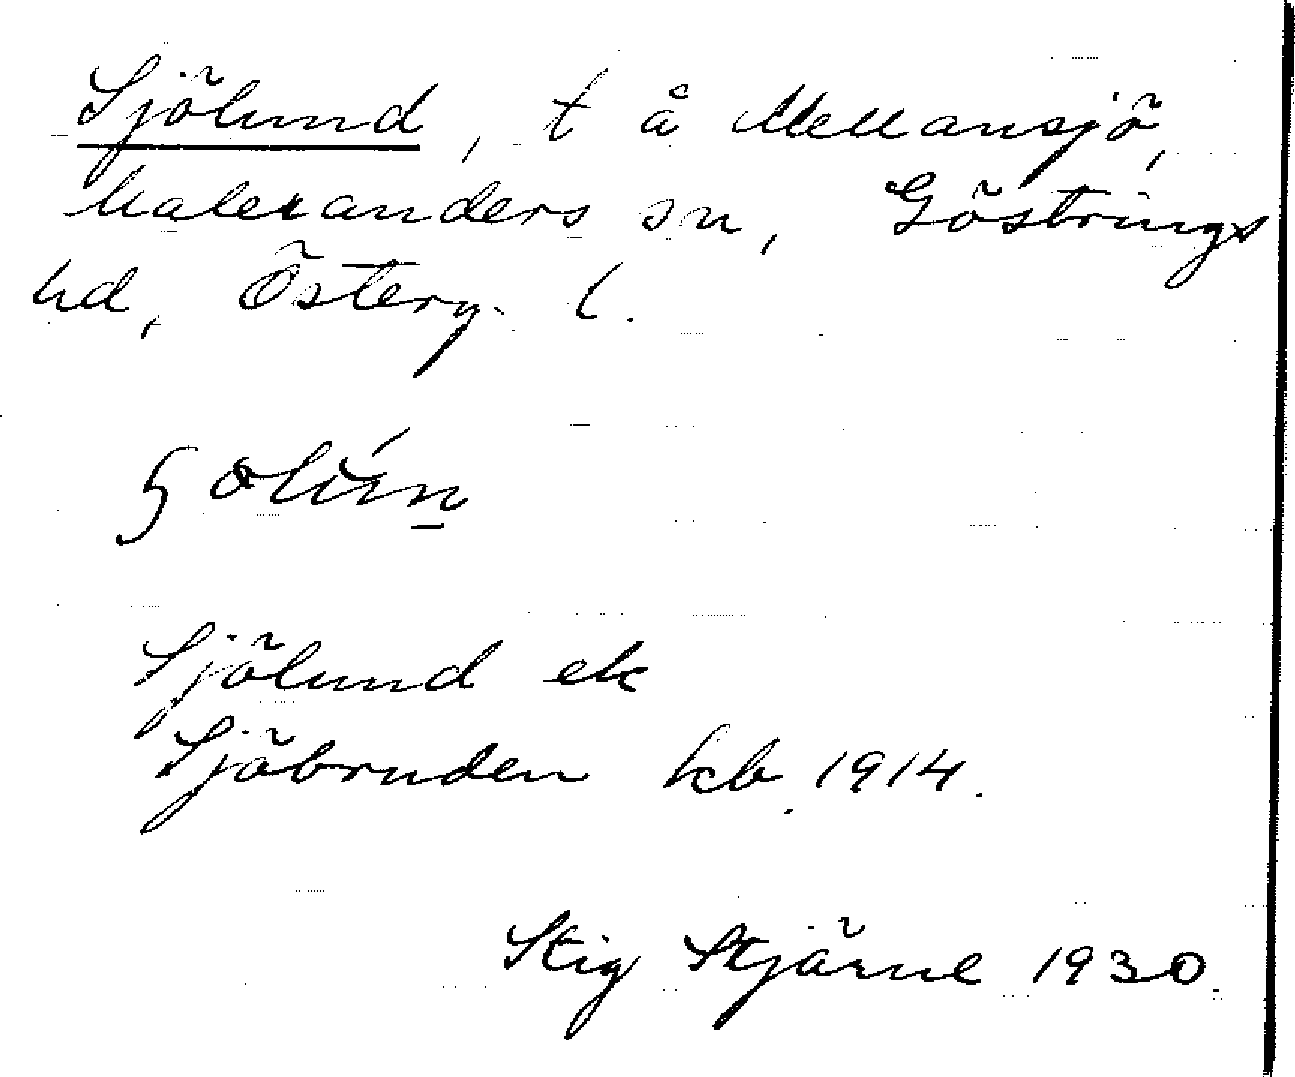 Sjölund, t å Mellansjö,
Malexanders sn, Göstrings
hd, Österg. l.
Sjölund ek
Sjöbruden kb. 1914.
Stig Stjärne 1930.